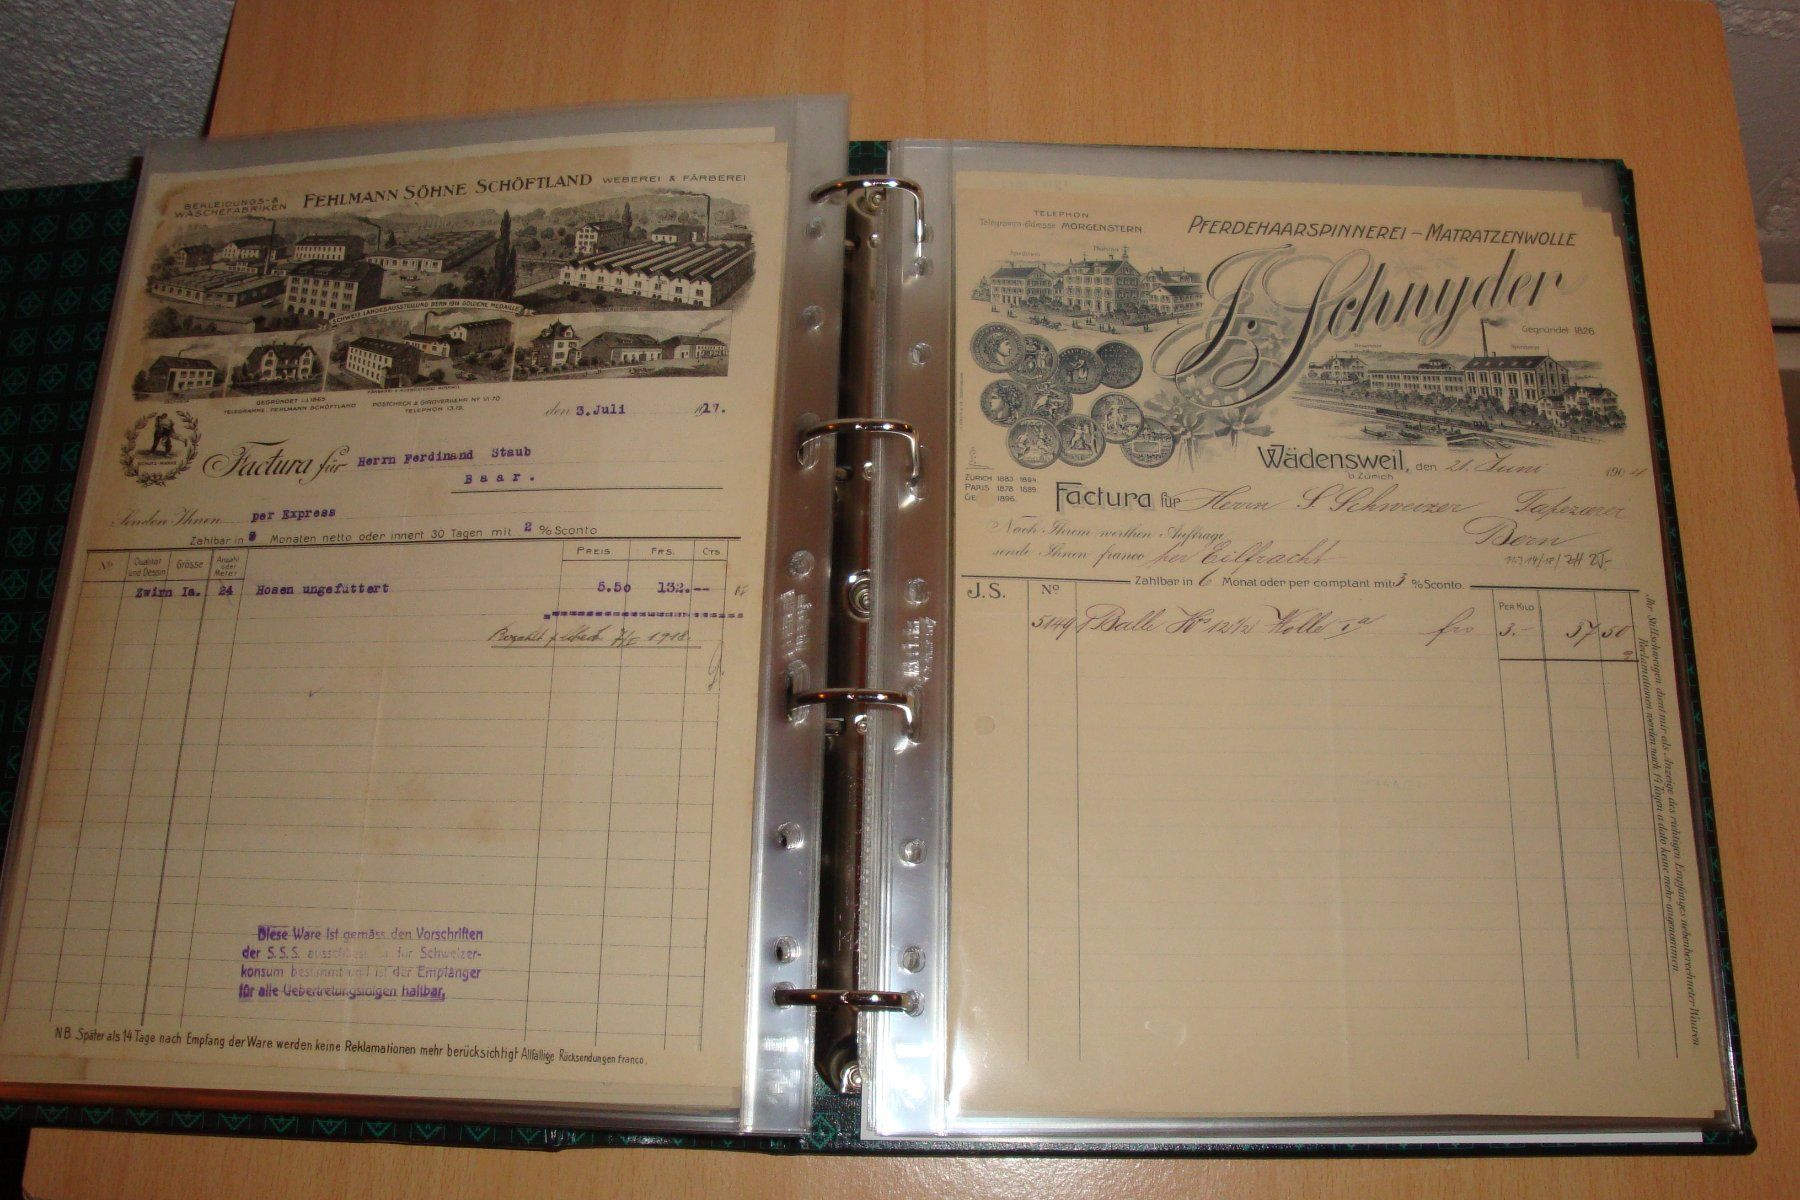 BEKLEIDUNGS- &
WÄSCHEFABRIKEN
FEHLMANN SÖHNE SCHÖFTLAND
WEBEREI & FÄRBEREI
SCHWEIZ. LANDESAUSSTELLUNG BERN 1914 GOLDENE MEDAILLE
GEGRÜNDET 1865
TELEGRAMME: FEHLMANN SCHÖFTLAND
POSTCHECK & GIROVERKEHR Nº VI 70
TELEPHON 13.19.
den 3. Juli 1917.
SCHUTZ-MARKE
Factura für Herrn Ferdinand Staub
Baar.
Senden Ihnen per Express
Zahlbar in Monaten netto oder innert 30 Tagen mit 2 % Sconto
Nº Qualität und Dessin Grösse Anzahl oder Meter PREIS. FRS. CTS.
Zwirn Ia. 24 Hosen ungefüttert 5.50 132.--
1918
Diese Ware ist gemäss den Vorschriften
der S.S.S. ausschliesslich für Schweizer-
konsum bestimmt und ist der Empfänger
für alle Uebertretungsfolgen haftbar.
NB. Später als 14 Tage nach Empfang der Ware werden keine Reklamationen mehr berücksichtigt Allfällige Rücksendungen franco.
TELEPHON
Telegramm-Adresse MORGENSTERN
PFERDEHAARSPINNEREI – MATRATZENWOLLE
J. Schnyder
Gegründet 1826
Spinnerei
Wädensweil, den 21. Juni 1904
b. Zürich
ZÜRICH 1883 1894.
PARIS 1878 1889.
GE: 1896.
Factura für Herrn S. Schweizer Tapezierer
Bern
Nach Ihrem werthen Auftrage
sende Ihnen franco per Eilfracht
Zahlbar in 6 Monat oder per comptant mit 3 % Sconto.
J.S. Nº PER KILO
5149 1 Balle Ko 12½ Wolle Ia frs 3.- 37 50
Ihr Stillschweigen dient mir als Anzeige des richtigen Empfanges nebenberechneter Waaren.
Reclamationen werden nach 14 Tagen a dato keine mehr angenommen.